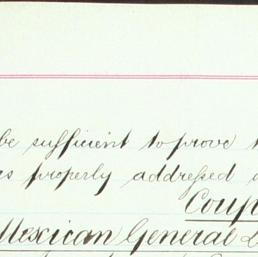 be sufficient to prove
properly addressed
Coup
Mexican General